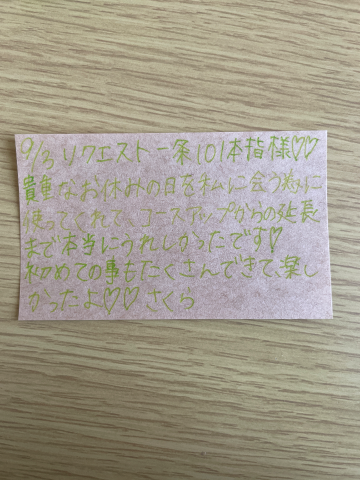 9/3 リクエスト一条101本指様♡♡
貴重なお休みの日を私に会う為に
使ってくれて、コースアップからの延長
まで本当にうれしかったです♡
初めての事もたくさんできて、楽し
かったよ♡♡ さくら